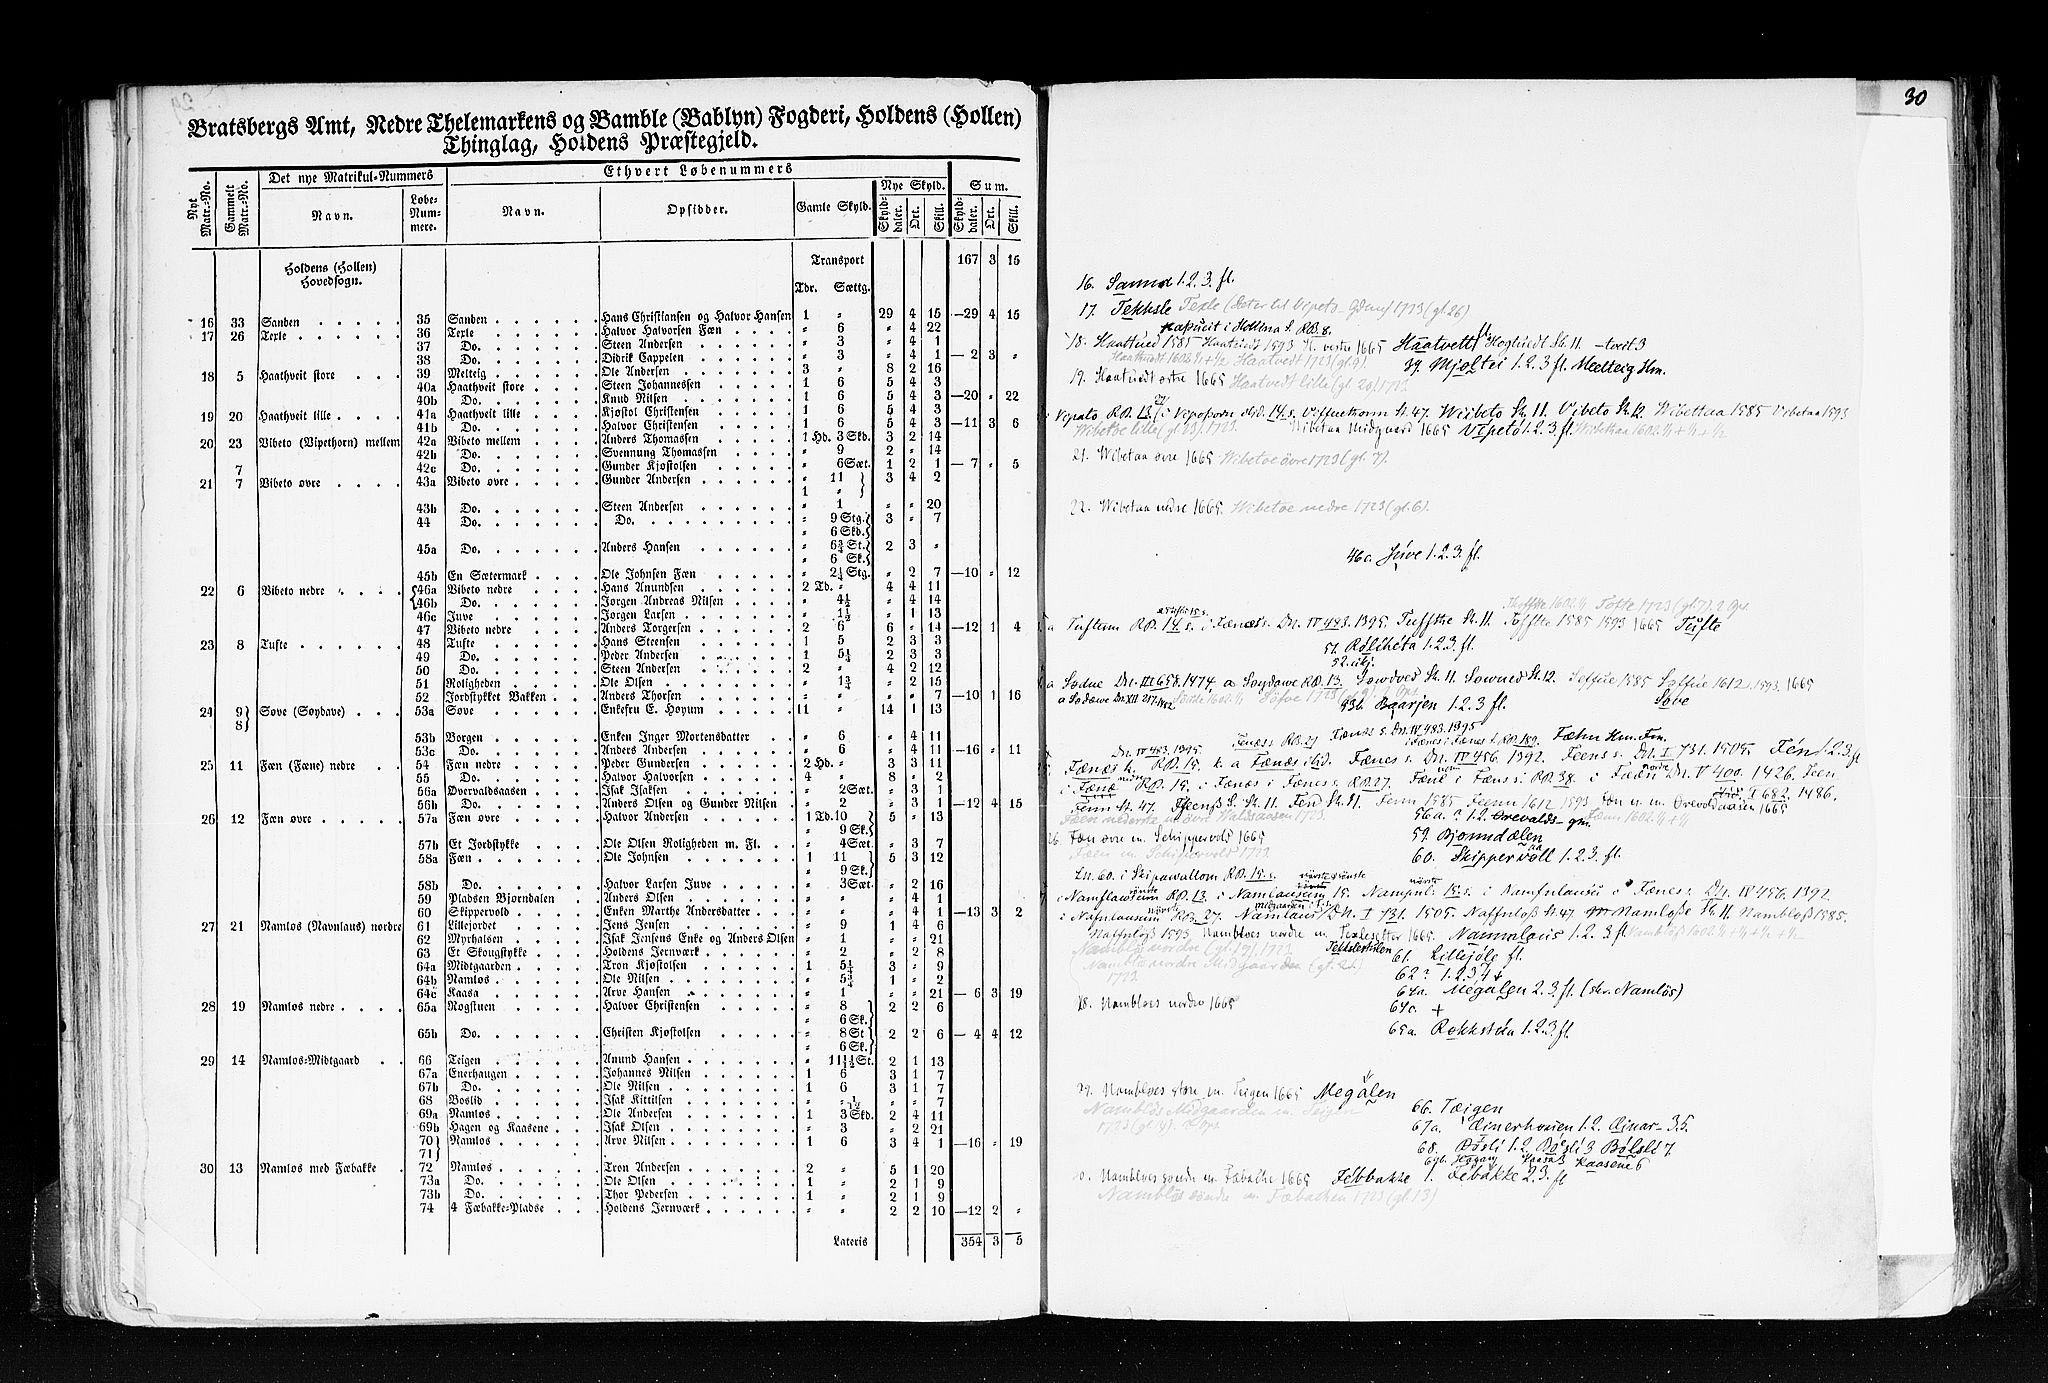 Bratsbergs Amt, Nedre Thelemarkens og Bamble (Bablyn) Fogderi, Holdens (Hollen)
Thinglag, Holdens Præstegjeld.
Nyt Matr.-No. Gammelt Matr.-No. Det nye Matrikul-Nummers Ethvert Løbenummers
Navn. Løbe-Num-mere. Navn. Opsidder. Gamle Skyld. Nye Skyld. Sum.
Skyld-daler. Ort. Skill. Skyld-daler. Ort. Skill.
Holdens (Hollen) Hovedsogn. Transport 167 3 15
Tdr. Sættg.
16 33 Sanden 35 Sanden Hans Christiansen og Halvor Hansen 1 " 29 4 15 —29 4 15
17 26 Texle 36 Texle Halvor Halvorsen Fæn " 6 " 4 22
37 Do. Steen Andersen " 3 " 4 1
38 Do. Didrik Cappelen " 3 " 4 1 — 2 3 "
18 5 Haathveit store 39 Melteig Ole Andersen 3 " 8 2 16
40a Haathveit store Steen Johannessen 1 6 5 4 3
40b Do. Knud Nilsen 1 6 5 4 3 —20 " 22
19 20 Haathveit lille 41a Haathveit lille Kjøstol Christensen 1 6 5 4 3
41b Do. Halvor Christensen 1 6 5 4 3 —11 3 6
20 23 Vibeto (Vipethorn) mellem 42a Vibeto mellem Anders Thomassen 1 Hd. 3 Skd. 2 2 14
42b Do. Svennung Thomassen " 9 2 " 14
7 42c Do. Gunder Kjøstolsen " 6 Sæt. 1 2 1 — 7 " 5
21 7 Vibeto øvre 43a Vibeto øvre Gunder Andersen " 11 } 3 4 2
1 " }
43b Do. Steen Andersen " 1 " " 20
44 Do. Do. " 9 Stg. } 3 " 7
" 6 Skd. }
45a Do. Anders Hansen " 6¾ St. } 2 3 "
" 6 Sk. }
45b En Sætermark Ole Johnsen Fæn " 2¼ Stg. " 2 7 —10 " 12
22 6 Vibeto nedre { 46a Vibeto nedre Hans Anundsen 2 Td. " 4 4 11
46b Do. Jørgen Andreas Nilsen " 4½ " 4 14
46c Juve Jørgen Larsen " 1½ " 1 13
47 Vibeto nedre Anders Torgersen 2 6 6 " 14 —12 1 4
23 8 Tufte 48 Tufte Hans Steensen 1 5 2 3 3
49 Do. Peder Andersen 1 5¼ 2 3 3
50 Do. Steen Andersen 2 " 4 2 12
51 Roligheden Ole Olsen " 1¾ " 2 15
52 Jordstykket Bakken Anders Thorsen " " " " 7 —10 1 16
24 9 8 } Søve (Søydave) 53a Søve Enkefru E. Hoyum 11 " 14 1 13
53b Borgen Enken Inger Mortensdatter " 6 " 4 11
53c Do. Anders Andersen " 6 " 4 11 —16 " 11
25 11 Fæn (Fæne) nedre 54 Fæn nedre Peder Gundersen 2 Hd. " 3 3 11
55 Do. Halvor Halvorsen 4 " 8 " 2
56a Overvaldsaasen Isak Isaksen " 2 Sæt. " 3 1
56b Do. Anders Olsen og Gunder Nilsen " 2 " 3 1 —12 4 15
26 12 Fæn øvre 57a Fæn øvre Halvor Andersen 1 Td. 10 } 5 " 13
" 9 Sk. }
57b Et Jordstykke Ole Olsen Roligheden m. Fl. " 4 Sæt. " 3 7
58a Fæn Ole Johnsen 1 11 } 5 3 12
" 9 Sk. }
58b Do. Halvor Larsen Juve " 3 Sæt. " 2 16
59 Pladsen Bjørndalen Anders Olsen " " " 4 1
60 Skippervold Enken Marthe Andersdatter " " " 4 1 —13 3 2
27 21 Namlos (Navnlaus) nordre 61 Lillejordet Jens Jensen " 9 1 4 6
62 Myrhalsen Isak Jensens Enke og Anders Olsen " 1 " " 21
63 Et Skougstykke Holdens Jernværk " 2 " 2 8
64a Midtgaarden Tron Kjøstolsen 1 5¼ 3 " 9
64b Namlos Ole Nilsen " 5¾ 1 " 2
64c Kaasa Arve Hansen " 1 " " 21 — 6 3 19
28 19 Namlos nedre 65a Rogstuen Halvor Christensen " 8 } 2 2 6
" 6 Sk. }
65b Do. Christen Kjøstolsen " 8 St } 2 2 6 — 4 4 12
" 6 Sk. }
29 14 Namlos-Midtgaard 66 Teigen Anund Hansen " 11½ St. 2 1 13
67a Enerhaugen Johannes Nilsen 1 6 3 1 7
67b Do. Ole Nilsen 1 6 3 1 7
68 Boslid Isak Kittilsen " ½ " " 7
69a Namlos Ole Andersen 1 3 Skd. 2 4 11
69b Hagen og Kaasene Isak Olsen " 3 " 2 21
70 } Namlos Arve Nilsen 1 6 3 4 1 —16 " 19
71 }
30 13 Namlos med Fæbakke 72 Namlos Tron Andersen 2 " 5 1 20
73a Do. Ole Olsen 1 " 2 1 9
73b Do. Thor Pedersen 1 " 2 1 9
74 4 Fæbakke-Pladse Holdens Jernværk " " 2 2 10 —12 2 "
Lateris 354 3 5
30
16. Sannd 1.2.3. fl.
17. Tekksle Texle (Deter til Vipeto 1723 (gl. 26)
18. Haattued 1585 Haatuedt 1593 H. vestre 1665 Haatvett Hogluedt St. 11. —tveit 3
Haatuedt 1602 Haatvedt 1723 (gl. 9). 39. Mjøltei 1.2.3 fl. Meelteig Hm.
19. Haatuedt østre 1665 Haatvedt lille (gl. 20) 1723
Vepato RB. 13. i Vepoþorne 14. s. Viffuetkorm St. 47. Wiibeto Sk. 11. Vibeto Sk. 12. Wibettaa 1585 Vibetaa 1593
Wibetoe lille (gl. 23). 1723. Wibetaa Midgaard 1665 Vípetó 1.2.3. fl.
21. Wibetaa øvre 1665 Wibetoe øvre 1723 (gl. 7).
22. Wibetaa nedre 1665. Wibetoe nedre 1723 (gl. 6).
46c. Júve 1.2.3. fl.
Tofte 1723 (gl. 7).
Tufterm RB. 14. s. i Fænes s. Dn. IV 483. 1395. Tuffthe Sk. 11. Tofftta 1585 1593 1665 Tufte
51. Rólíhéta 1.2.3. fl.
52. ubj.
a Sødue Dn. III 658. 1474, a Søydawe RB. 13. Sowdved Sk. 11. Sowued Sk. 12. Søffue 1585 Søffue 1612, 1593. 1665
53b. Baarjen 1.2.3 fl. Søve
Dn. IV 483. 1395. Fænes s. RB. 27 Fænes s. Dn. IV 483. 1395 Fæhn Hm. Fm.
Fænes k. RB. 15. k. a Fænes ibid. Fænes s. Dn. IV 456. 1392. Feens s. Dn. I 731. 1505. Fén 1.2.3. fl
i Fænæ RB. 15. i Fænes i Fænes s. RB. 27. Fæne i Fæns s. RB. 38. i Fææn Dn. V 400. 1426. Feen
Fenn St. 47. Sk. 11. Fen Sk. 11. Fenn 1585 Feenn 1612 1593 Fæn n. m. Orevoldaasen 1665
Fæen nederste m. øvre Waldsaasen 1723. 56a. ? 1.2. Orevalds-
26. Fæn øvre m. Schippervold 1665 59. Bjønndalen
Fæen m. Schippervold 1723. 60. Skippervoll 1.2.3. fl.
Ln. 60. i Skipawallom RB. 15. s.
i Namflausum RB. 13. i Namlausum 15. Nampnl. 15. s. i Namfnlausu i Fænes s. Dn. IV 456. 1392.
i Nafnlausum RB. 27. Namlaus Dn. I 731. 1505. Naffnløß St. 47 Namloße Sk. 11. Nambløß 1585.
Naffnløß 1593. Nambloes nordre m. Texlesetter 1665. Nammlaus 1.2.3. fl
Namblos nordre (gl. 19). 1723. Tekksleråsen 61. Lillejóle fl.
Namblos nordre Midgaarden (gl. 21) 62 ? 1.2.3 4 +
1723. 64a. Megålen 2.3. fl. (skr. Namlös)
28. Nambloes nordre 1665 64c. +
65a. Rokkstúa 1.2.3 fl.
29. Nambloes store m. Teigen 1665 Megålen
Namblos Midgaarden m. Teigen 66. Tæigen
1723 (gl. 14). 67a. Æinerhouien 1.2. Æinar- 3.5.
68. Bósli 1.2. Bósli 3 Bólsli 7
69b. Hagany Kaasa 3 Kaasene 6
Nambloes søndre m. Fæbache 1665 Fébbakke 1. Febakke 2.3. fl
Namblos søndre m. Fæbachen 1723 (gl. 13)